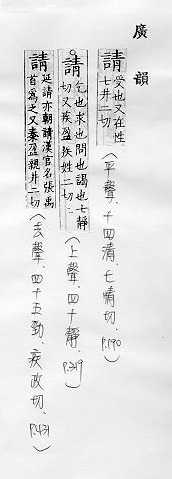 廣韻
請 受也又在性七井二切 (平聲、十四清、七情切、P.190)
請 乞也求也問也謁也七靜切又疾盈疾姓二切 (上聲、四十靜、P.319)
請 延請亦朝請漢官名張禹首爲之又秦盈親井二切 (去聲、四十五勁、疾政切、P.431)